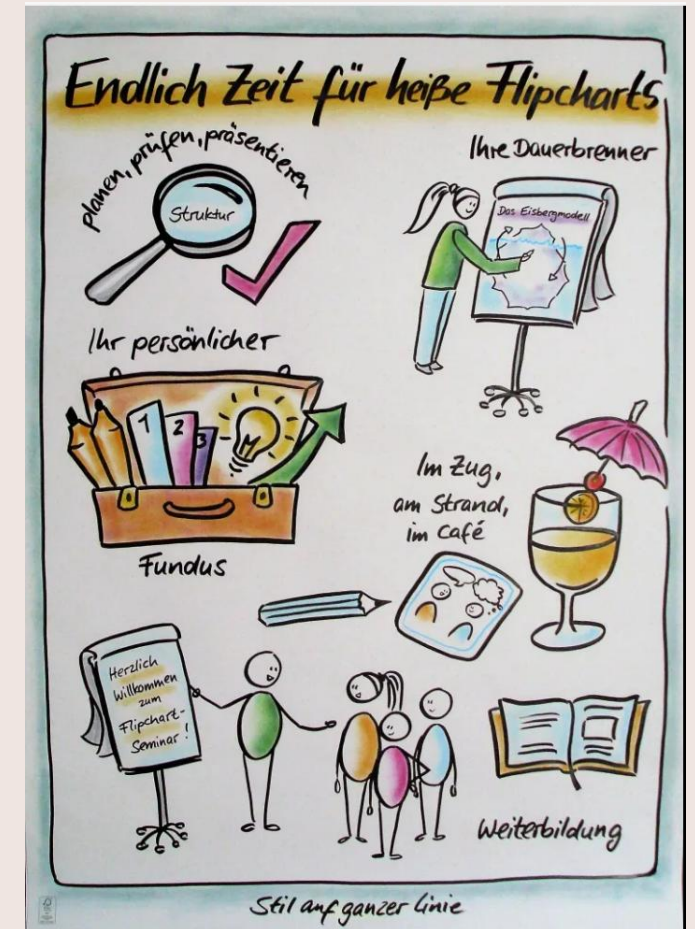 Endlich Zeit für heiße Flipcharts
planen, prüfen, präsentieren
Struktur
Ihre Dauerbrenner
Das Eisbergmodell
Ihr persönlicher
1
2
3
Fundus
Im Zug,
am Strand,
im Café
Herzlich
Willkommen
zum
Flipchart-
Seminar!
Weiterbildung
Stil auf ganzer Linie